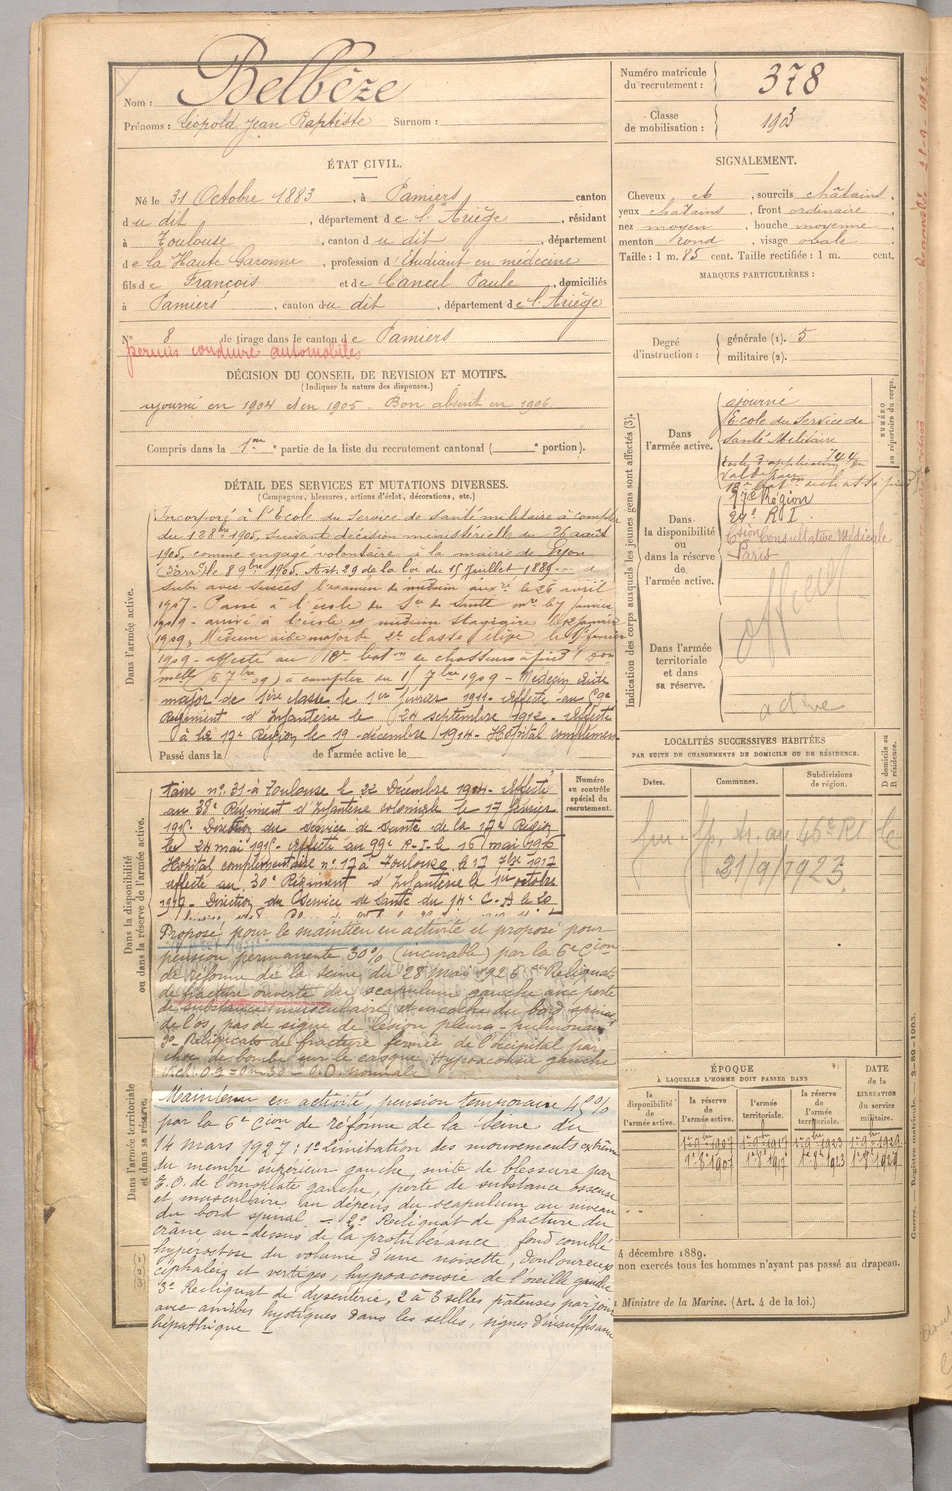 Nom : Belbèze
Prénoms : Léopold Jean Baptiste Surnom :
Numéro matricule du recrutement : 378
Classe de mobilisation : 1903
ÉTAT CIVIL.
Né le 31 Octobre 1883, à Pamiers canton
du dit, département de l'Ariège, résidant
à Toulouse, canton du dit, département
de la Haute Garonne, profession d'étudiant en médecine
fils de François et de Cancel Paule, domiciliés
à Pamiers, canton du dit, département de l'Ariège
N° 8 de tirage dans le canton de Pamiers
permis conduire automobiles
SIGNALEMENT.
Cheveux ch, sourcils châtains,
yeux châtains, front ordinaire
nez moyen, bouche moyenne,
menton rond, visage ovale
Taille : 1 m. 85 cent. Taille rectifiée : 1 m. cent.
MARQUES PARTICULIÈRES :
Degré d'instruction : générale (1). 5
militaire (2).
DÉCISION DU CONSEIL DE REVISION ET MOTIFS.
(Indiquer la nature des dispenses.)
ajourné en 1904 et en 1905. Bon absent en 1906
Compris dans la 1ère partie de la liste du recrutement cantonal ( e portion).
DÉTAIL DES SERVICES ET MUTATIONS DIVERSES.
(Campagnes, blessures, actions d'éclat, décorations, etc.)
Dans l'armée active.
Incorporé à l'École du Service de santé militaire à compter
du 1905, suivant décision ministérielle du 26 août
1905, comme engagé volontaire à la mairie de Lyon
le 8 9bre 1905. Art. 29 de la loi du 15 Juillet 1889
subi avec succès l'examen de médecin auxre le 26 avril
1907 - Passé à l'école du Sce de Santé mre
1909 - arrivé à l'école médecin stagiaire
1909, Médecin aide major de 2e classe élève le 1er février
1909 - affecté au 18e baton de chasseurs à pied
à compter du 1909 - Médecin Aide
major de 1ère classe le 1er février 1911 - Affecté au
Régiment d'Infanterie le 24 septembre 1912. Affecté
à la 17e Région le 19 décembre 1914. Hôpital complémen
Passé dans la de l'armée active le
Dans la disponibilité ou dans la réserve de l'armée active.
Numéro au contrôle spécial du recrutement.
taire n° 31 à Toulouse le 22 Décembre 1914. Affecté
au 38e Régiment d'Infanterie coloniale le 17 février
1915. Direction du Service de Santé de la 17e Région
le 24 mai 1915. Affecté au 99e R.I. le 16 mai 1916
Hôpital complémentaire n° 17 à Toulouse le 17 7bre 1917
affecté au 30e Régiment d'Infanterie le 1er octobre
Direction du Service de Santé du 14e C. A le
Proposé pour le maintien en activité et proposé pour
pension permanente 30% (incurable) par la 6e Cion
de réforme de la Seine du 28 mai 1926 Reliquats
de fracture ouverte du scapulum gauche avec perte
de substance musculaire et encoche du bord spinal
de l'os, pas de signe de lésion pleuro-pulmonaire
Reliquats de fracture fermée de l'occipital par
choc de bombe sur le casque. Hypoacousie gauche
Maintenu en activité pension temporaire 45%
par la 6e Cion de réforme de la Seine du
14 mars 1927 : 1° Limitation des mouvements extrêmes
du membre supérieur gauche, suite de blessure par
E.O. de l'omoplate gauche, perte de substance osseuse
et musculaire au dépens du scapulum au niveau
du bord spinal = 2° Reliquat de fracture du
crâne au-dessus de la protubérance, fond comblé
hyperostose du volume d'une noisette, douloureux
céphalées et vertiges, hypoacousie de l'oreille gauche
3° Reliquat de dysenterie, 2 à 3 selles pâteuses par jour
avec amibes kystiques dans les selles, signes d'insuffisance
hépathique -
Dans l'armée territoriale et dans sa réserve.
(1)
(2)
(3)
Indication des corps auxquels les jeunes gens sont affectés (3).
NUMÉRO au répertoire du corps.
Dans l'armée active.
ajourné
École du Service de
Santé Militaire
744
Ecole d'application du
Val de Grâce
Dans la disponibilité ou dans la réserve de l'armée active.
17e Région
R I
Cion Consultative Médicale
Paris
officier
Dans l'armée territoriale et dans sa réserve.
active
LOCALITÉS SUCCESSIVES HABITÉES
PAR SUITE DE CHANGEMENTS DE DOMICILE OU DE RÉSIDENCE.
Dates.
Communes.
Subdivisions de région.
D domicile ou R résidence.
au 46e RI
21/9/1923
ÉPOQUE
À LAQUELLE L'HOMME DOIT PASSER DANS
DATE de la LIBÉRATION du service militaire.
la disponibilité de l'armée active.
la réserve de l'armée active.
l'armée territoriale.
la réserve de l'armée territoriale.
4 décembre 1889.
non exercés tous les hommes n'ayant pas passé au drapeau.
Ministre de la Marine. (Art. 4 de la loi.)
Guerre. Registre matricule. 2-80-1903.